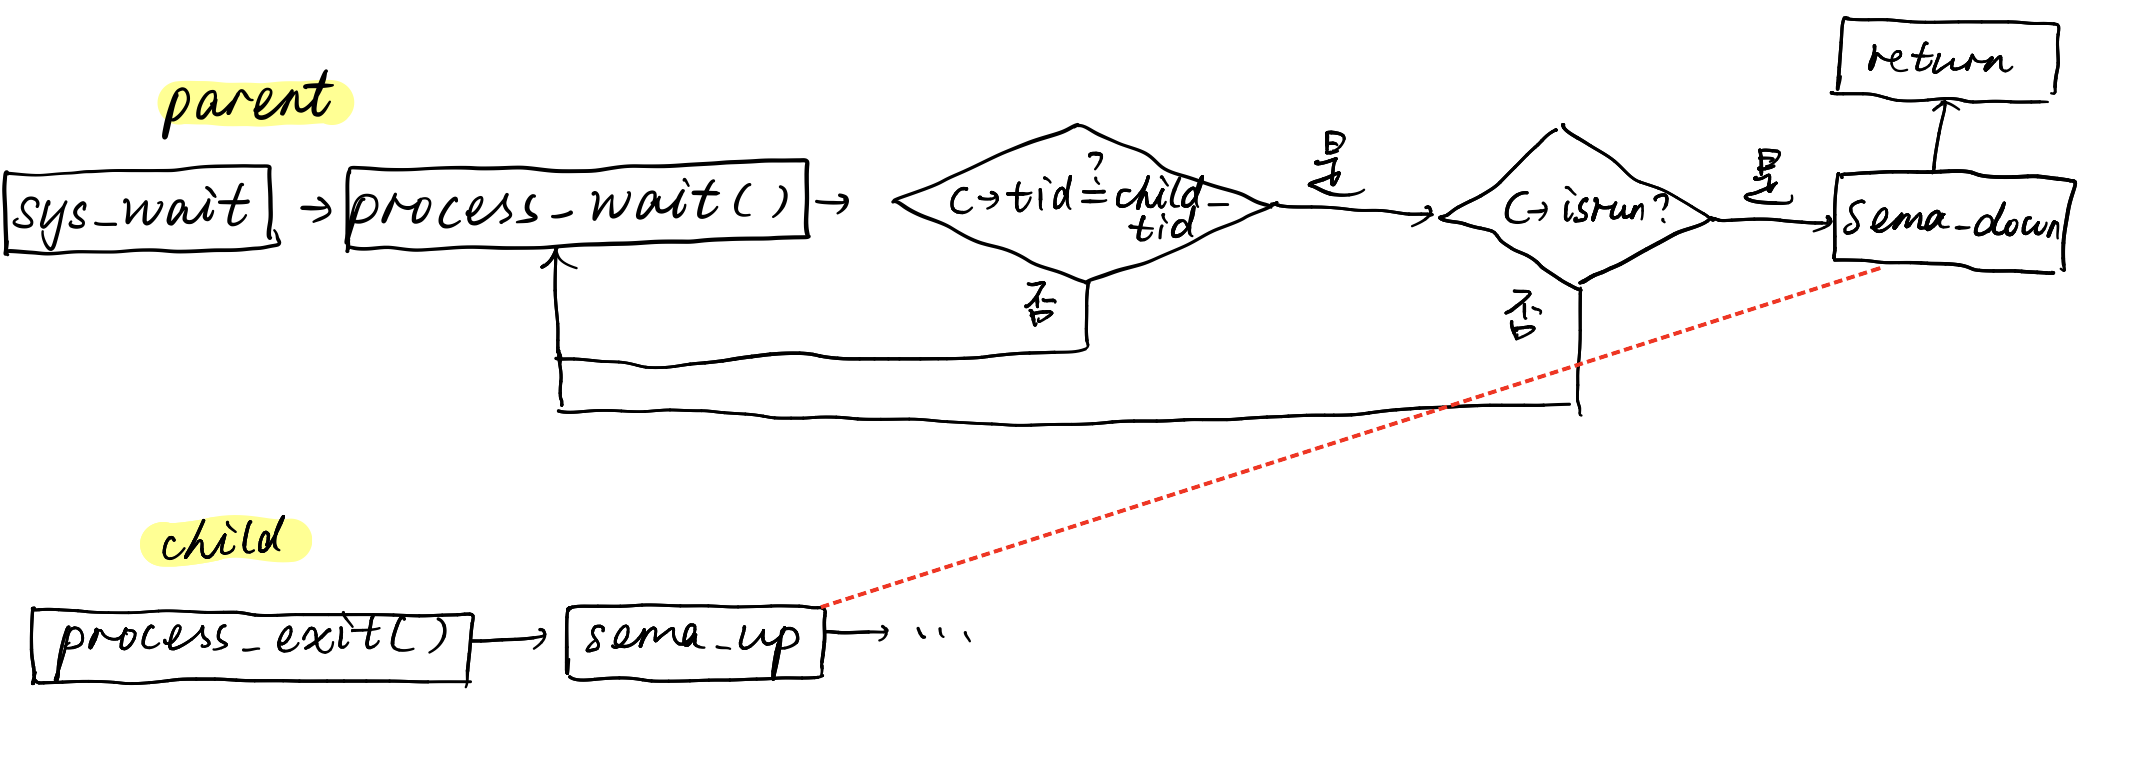 return
parent
sys_wait
process_wait()
c→tid ?= child_
tid
是
c→isrun?
是
sema_down
否
否
child
process_exit()
sema_up
...